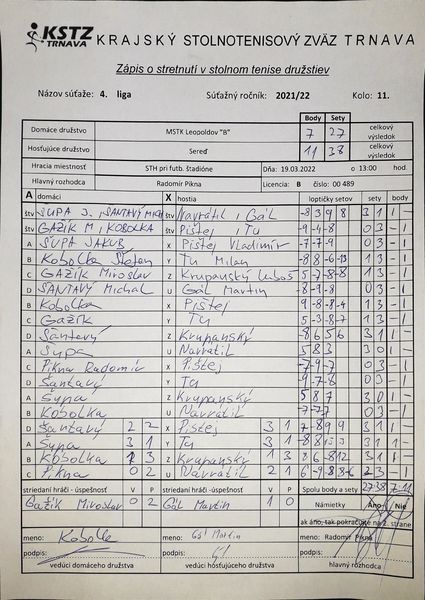 KSTZ TRNAVA KRAJSKÝ STOLNOTENISOVÝ ZVÄZ TRNAVA
Zápis o stretnutí v stolnom tenise družstiev
Názov súťaže: 4. liga Súťažný ročník: 2021/22 Kolo: 11.
Body Sety
Domáce družstvo MSTK Leopoldov "B" 7 27 celkový výsledok
Hosťujúce družstvo Sereď 11 38 celkový výsledok
Hracia miestnosť STH pri futb. štadióne Dňa: 19.03.2022 o 13:00 hod.
Hlavný rozhodca Radomir Pikna Licencia: B číslo: 00 489
A domáci X hostia loptičky setov sety body
štv ŠUPA J., ŠANTAVÝ MICH štv Navrátil, Gál -8 3 9 8 3 1 1 -
štv GAŽÍK M, KOBOLKA štv Pištej, Tu -9 -4 -8 0 3 - 1
A ŠUPA JAKUB X Pištej Vladimír -7 -7 -9 0 3 - 1
B Kobolka Štefan Y Tu Milan -8 8 -6 -13 1 3 - 1
C GAŽÍK Miroslav Z Krupanský Ľuboš 5 -7 -8 -8 1 3 - 1
D ŠANTAVÝ Michal U Gál Martin -8 -9 -8 0 3 - 1
B Kobolka X Pištej 9 -8 -8 -4 1 3 - 1
C Gažík Y Tu 5 -3 -8 -7 1 3 - 1
D Šantavý Z Krupanský -8 6 5 6 3 1 1 -
A Šupa U Navrátil 5 8 3 3 0 1 -
C Pikna Radomír X Pištej -7 -9 -7 0 3 - 1
D Šantavý Y Tu -9 -7 -8 0 3 - 1
A Šupa Z Krupanský 5 8 7 3 0 1 -
B Kobolka U Navrátil -7 -7 0 3 - 1
D Šantavý 2 2 X Pištej 3 1 7 -8 9 9 3 1 1 -
A Šupa 3 1 Y Tu 3 1 3 1 1 -
B Kobolka 1 3 Z Krupanský 1 3 8 6 -8 12 3 1 1 -
C Pikna 0 2 U Navrátil 2 1 6 -9 8 8 -6 2 3 - 1
striedaní hráči - úspešnosť V P striedaní hráči - úspešnosť V P Spolu body a sety 27 38 7 11
Gažík Miroslav 0 2 Gál Martin 1 0 Námietky Áno Nie
ak áno, tak pokračujte na 2. strane
meno: Kobolka meno: Gál Martin meno: Radomir Pikna
podpis: podpis: podpis:
vedúci domáceho družstva vedúci hosťujúceho družstva hlavný rozhodca